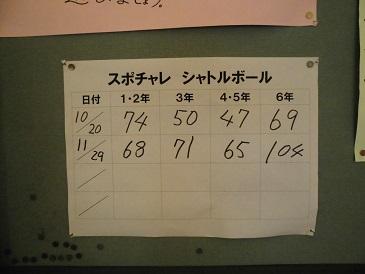 スポチャレ シャトルボール
日付 1・2年 3年 4・5年 6年
10/20 74 50 47 69
11/29 68 71 65 104
/
/